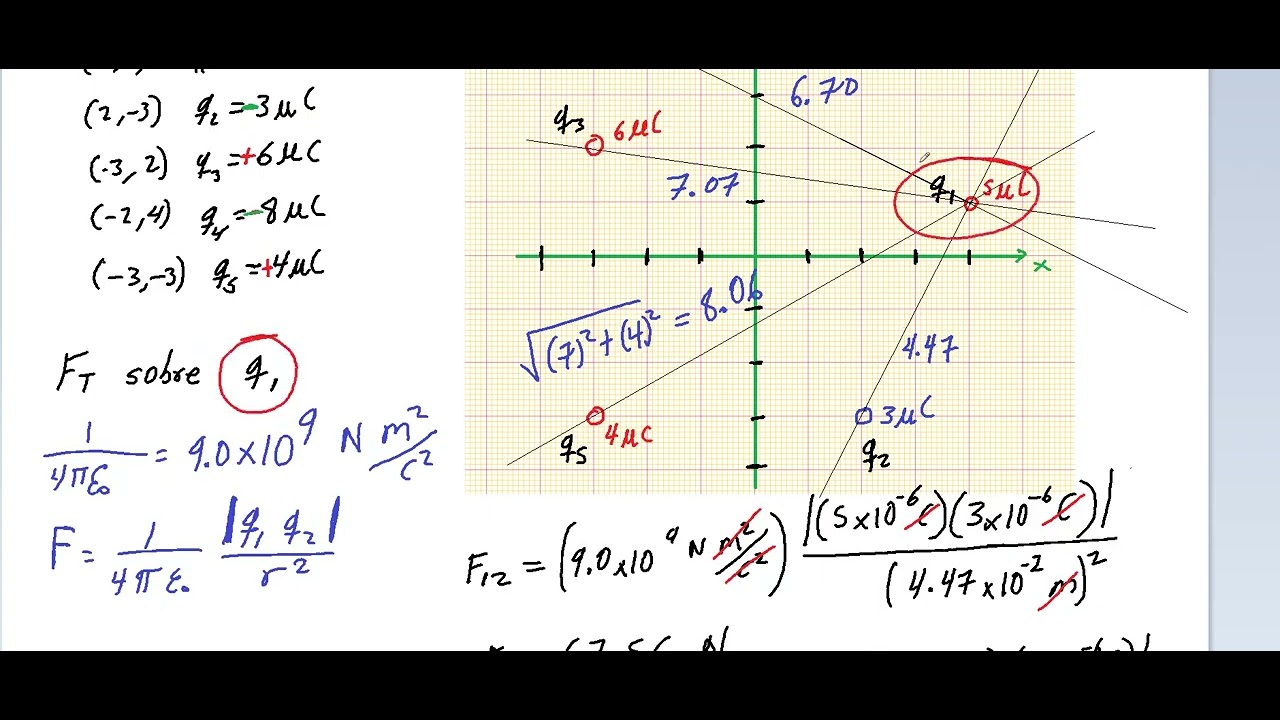 (2,-3) q₂ = -3 μC
(-3, 2) q₃ = +6 μC
(-2,4) q₄ = -8 μC
(-3,-3) q₅ = +4 μC
F_T sobre q₁
1/4πε₀ = 9.0×10⁹ N m²/c²
F = 1/4πε₀ |q₁ q₂|/r²
6.70
q₃ 6 μC
7.07
q₁ 5 μC
x
√(7)²+(4)² = 8.06
4.47
q₅ 4 μC
3 μC
q₂
F₁₂ = (9.0×10⁹ N m²/c²) |(5×10⁻⁶ C)(3×10⁻⁶ C)|/(4.47×10⁻² m)²